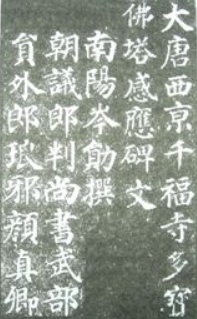 大唐西京千福寺多寳
佛塔感應碑文
南陽岑勛撰
朝議郎判尚書武部
貟外郎琅邪顏真卿